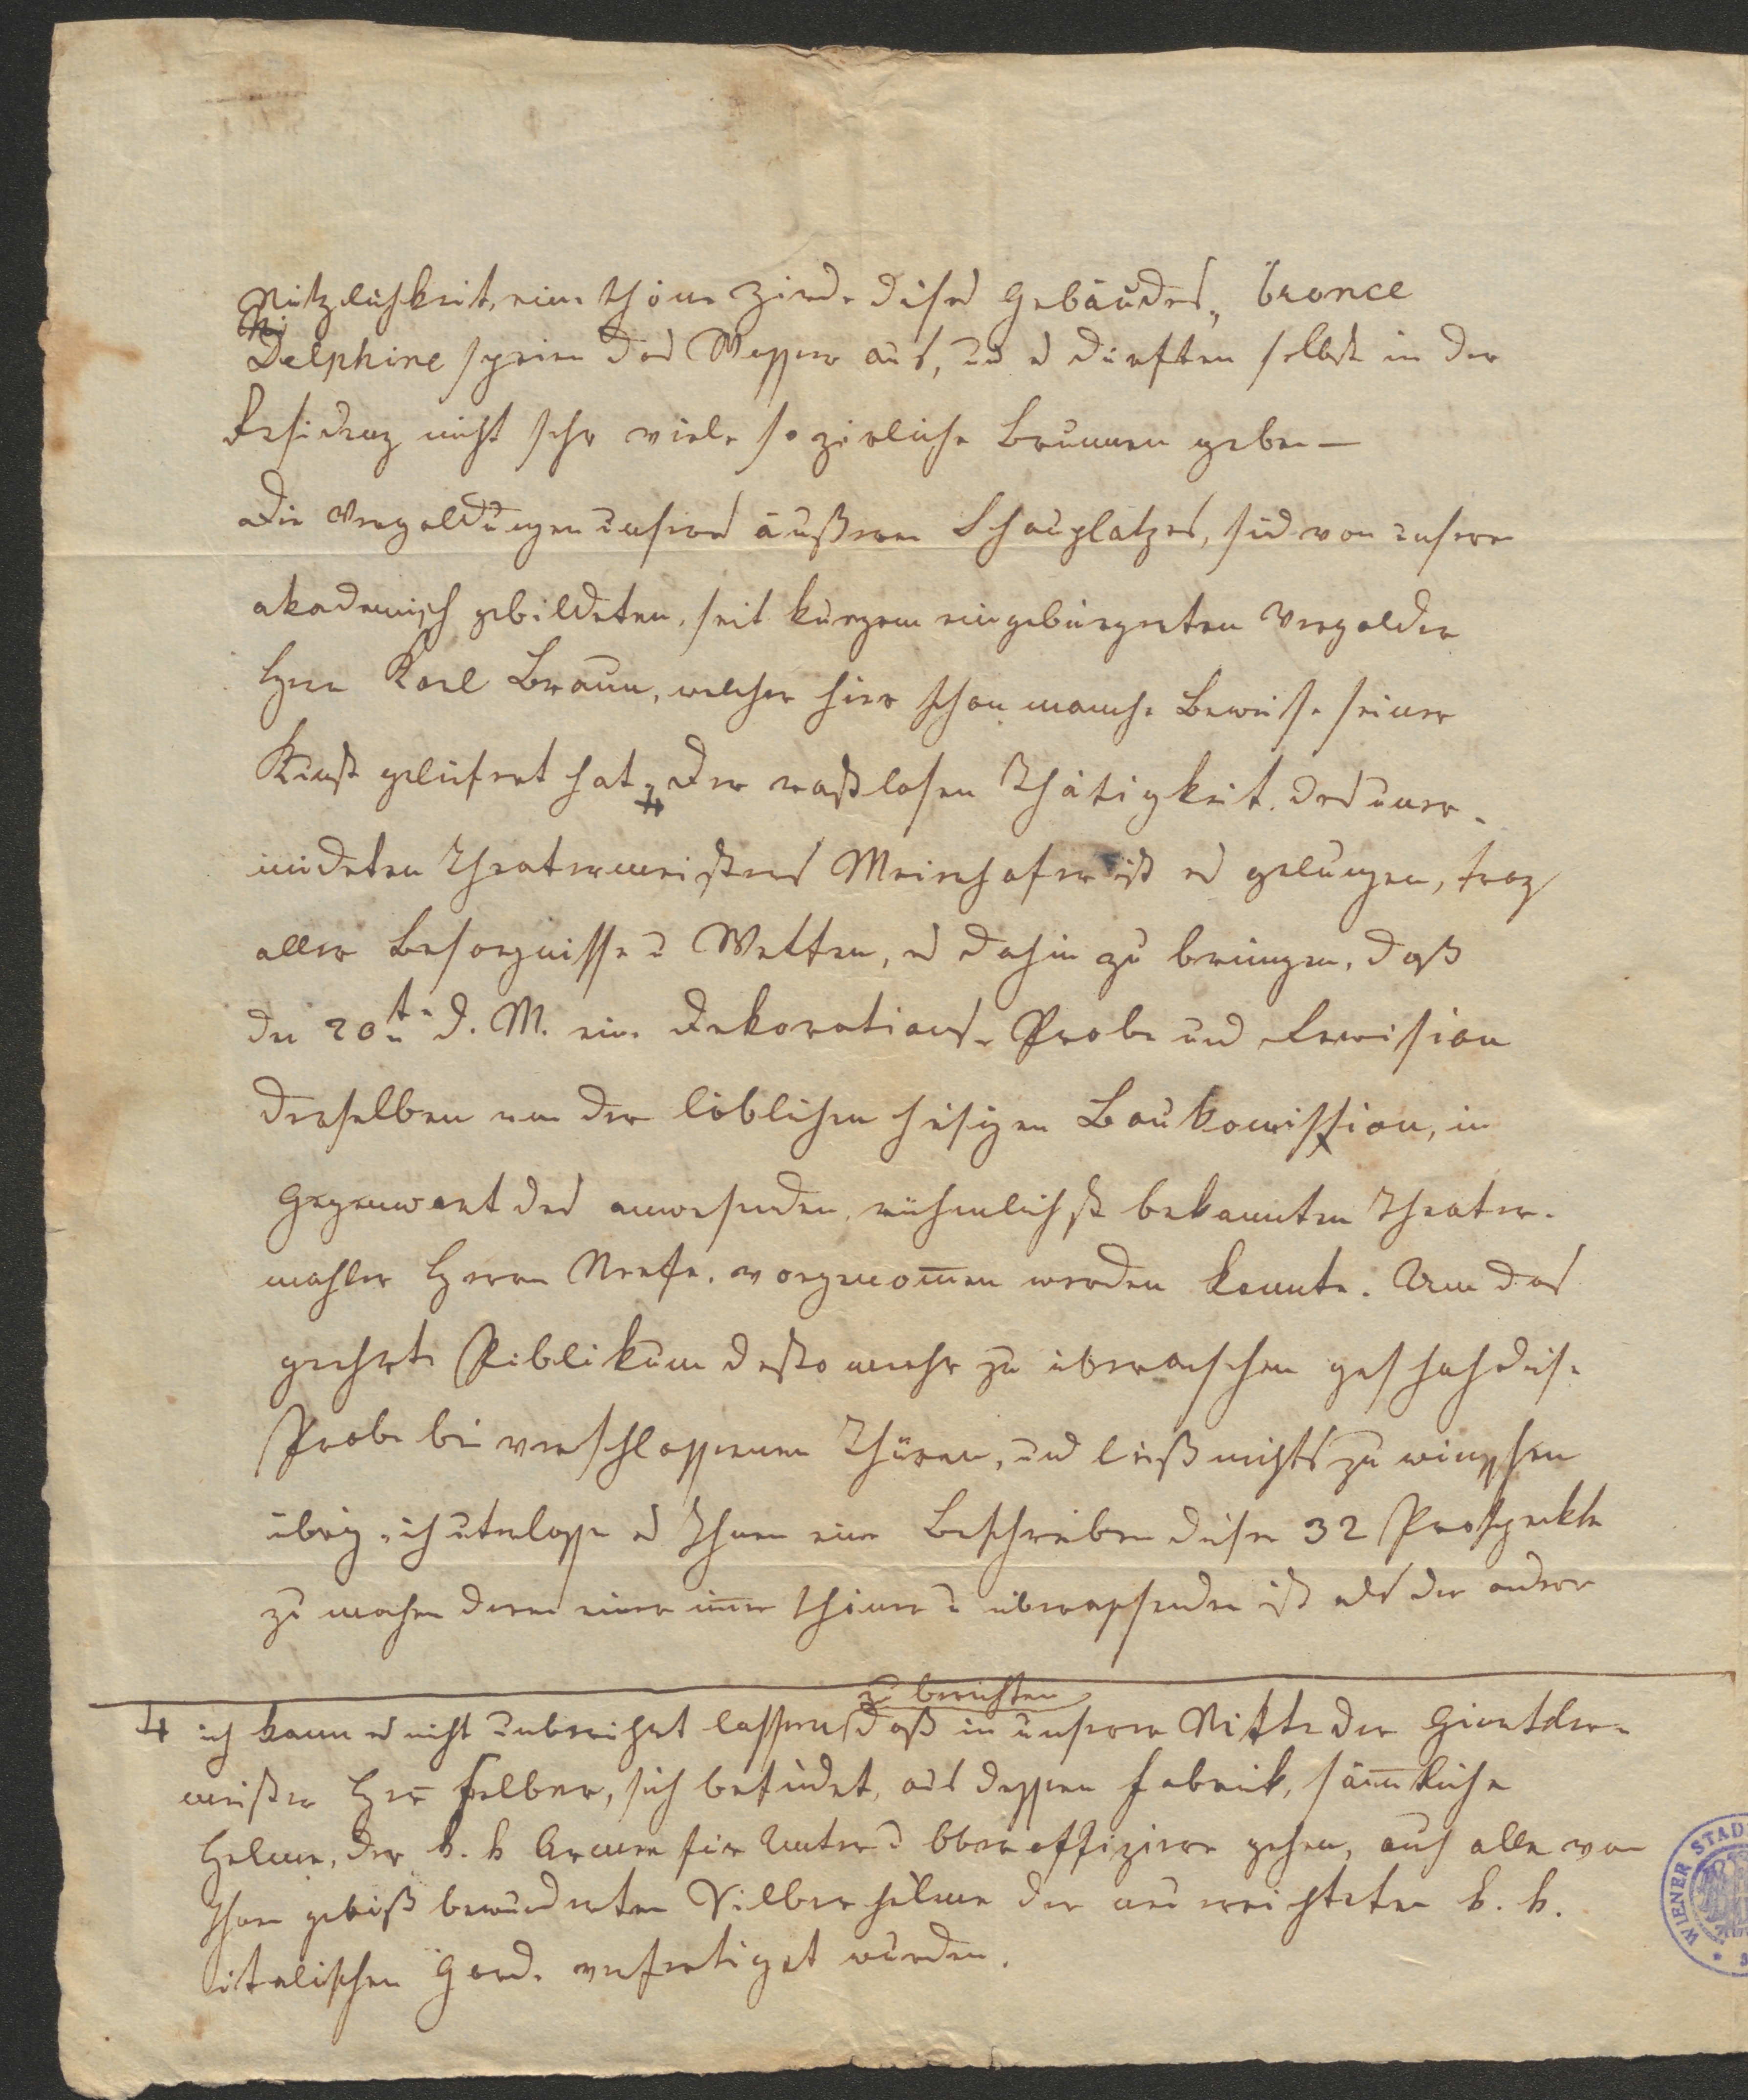 Nützlichkeit, eine schöne Zierde dises Gebäudes, bronce
Delphine speien das Wasser aus, und es dürften selbst in der
Residenz nicht sehr viele so zierliche Brunnen geben —
Die Vergoldungen unseres äußeren Schauplatzes, sind von unserem
akademisch gebildeten, seit kurzem eingebürgerten Vergolder
Herrn Karl Braun, welcher hier schon manche Beweise seiner
Kunst geliefert hat. ‡ Der rastlosen Thätigkeit des uner-
müdeten Theatermeisters Meirhofer ist es gelungen, troz
aller Besorgnisse u Wetten, es dahin zu bringen, daß
den 20ten d. M. eine Dekorations-Probe und Revision
derselben von der löblichen hisigen Baukommission, in
Gegenwart des anwesenden, rühmlichst bekannten Theater-
mahler Herrn Neefe, vorgenommen werden konnte. Um das
geehrte Publikum desto mehr zu überraschen geschah diese
Probe bei verschlossenen Thüren, und ließ nichts zu wünschen
übrig. ich unterlasse es Ihnen eine Beschreiben dieser 32 Prospeckte
zu machen deren einer immer schöner u überraschender ist als der andere
zu berichten
‡ ich kann es nicht unberührt lassen daß in unserer Mitte der Giertler-
meister Herr Felber, sich befindet, aus dessen Fabrick, sämmtliche
Helme, der k. k Armee für Unter u Oberoffiziere gehen, auch alle von
Ihnen gewiß bewunderten Silberhelme der neu errichteten k. k.
italischen Garde verfertiget wurden.
WIENER STAD